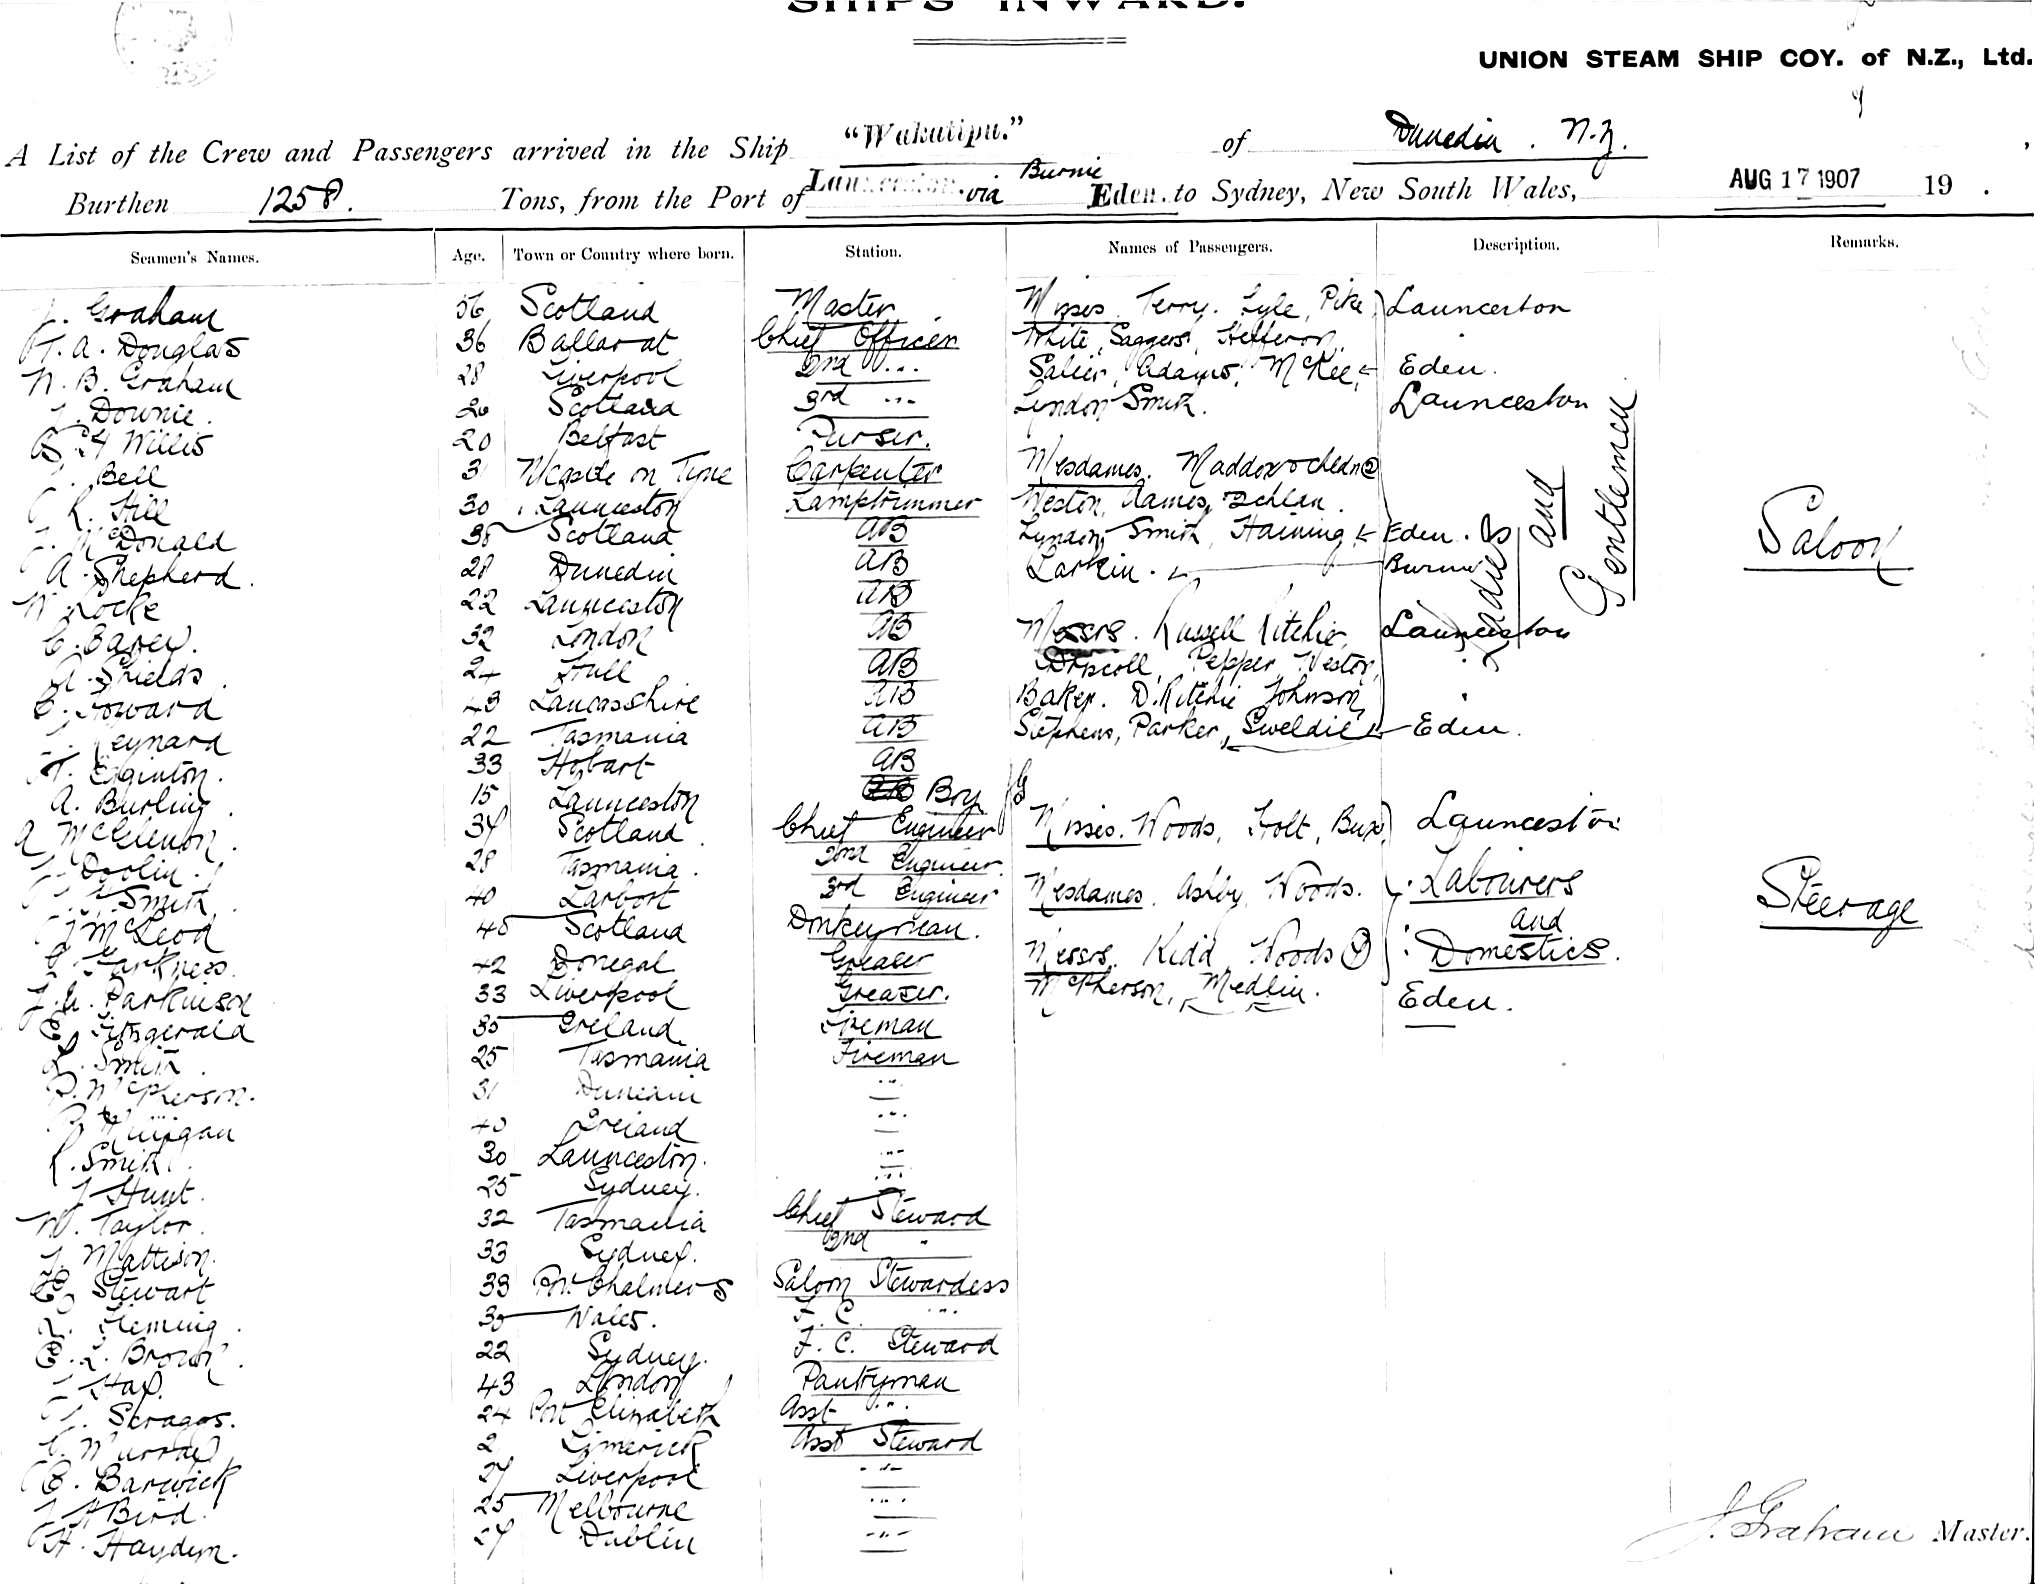 SHIPS INWARD.
UNION STEAM SHIP COY. of N.Z., Ltd.
A List of the Crew and Passengers arrived in the Ship "Wakatipu." of Dunedin. N.Z.
Burthen 1258. Tons, from the Port of Launceston. via Burnie Eden. to Sydney, New South Wales, AUG 17 1907 19 .
Seamen's Names. Age. Town or Country where born. Station. Names of Passengers. Description. Remarks.
J. Graham 56 Scotland Master Misses. Terry. Lyle, Pike Launceston
T. A. Douglas 36 Ballarat Chief Officer White, Saggers, Hefferon,
W. B. Graham 28 Liverpool 2nd " Salier, Adams, McKee, Eden.
J. Downie. 26 Scotland 3rd " Lyndon Smith. Launceston
Willis 20 Belfast Purser.
Bell 3 Ncastle on Tyne Carpenter Mesdames. Maddox & chldn (2)
R. Hill 30 Launceston Lamptrimmer Weston,
J. McDonald 35 Scotland AB Lyndon Smith, Haining Eden.
A. Shepherd. 28 Dunedin AB Larkin. Burnie
W Locke 22 Launceston AB
C. Barey. 32 London AB Messrs. Russell Ritchie, Launceston
A. Shields. 24 Hull AB Driscoll, Pepper, Weston,
C. Howard 43 Lancasshire AB Baker. D. Ritchie Johnson,
Reynard 22 Tasmania AB Stephens, Parker, Sweldie Eden.
T. Edginton. 33 Hobart AB
A. Burling. 15 Launceston Boy
A McGlenon. 34 Scotland. Chief Engineer Misses. Woods, Holt, Launceston
Doolin. 28 Tasmania. 2nd Engineer.
Smith 40 Larbort 3rd Engineer Mesdames. Ashby, Woods. Labourers
J McLeod 45 Scotland Donkeyman. and
Harkness. 42 Donegal Greaser Messrs. Kidd Woods Domestics.
Parkinson 33 Liverpool Greaser. McPherson, Medlin. Eden.
Fitzgerald 35 Ireland Fireman
L. Smith. 25 Tasmania Fireman
McPherson. 31 Dunedin "
40 Ireland "
R. Smith. 30 Launceston. "
J Hunt. 25 Sydney. "
W. Taylor. 32 Tasmania Chief Steward
J. Mattison. 33 Sydney. 2nd "
Stewart 33 Port Chalmers Saloon Stewardess
Fleming. 35 Wales. F. C. "
C. L. Brown. 22 Sydney. F. C. Steward
Hay. 43 London Pantryman
Scraggs. 24 Port Elizabeth Asst "
Murray 2 Limerick Asst Steward
C. Barwick 24 Liverpool "
J H Bird. 25 Melbourne "
H. Haydon. 24 Dublin "
Ladies and Gentlemen
Saloon
Steerage
J. Graham Master.